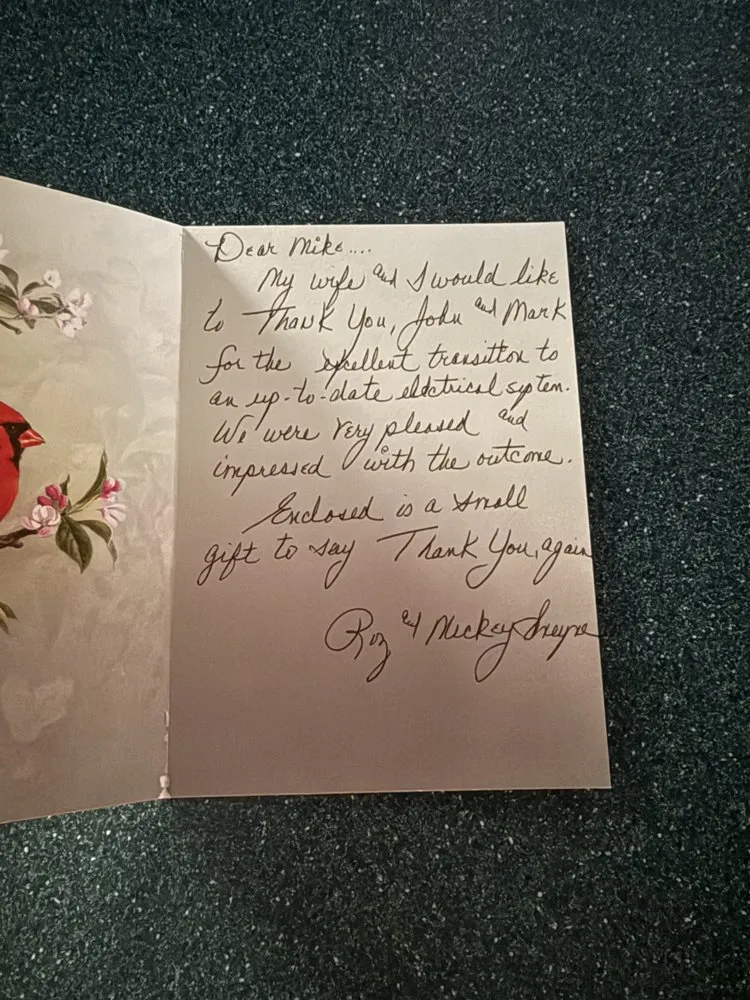 Dear Mike....
My wife and I would like
to Thank You, John and Mark
for the excellent transition to
an up-to-date electrical system.
We were very pleased and
impressed with the outcome.
Enclosed is a small
gift to say Thank You, again
Roz and Mickey